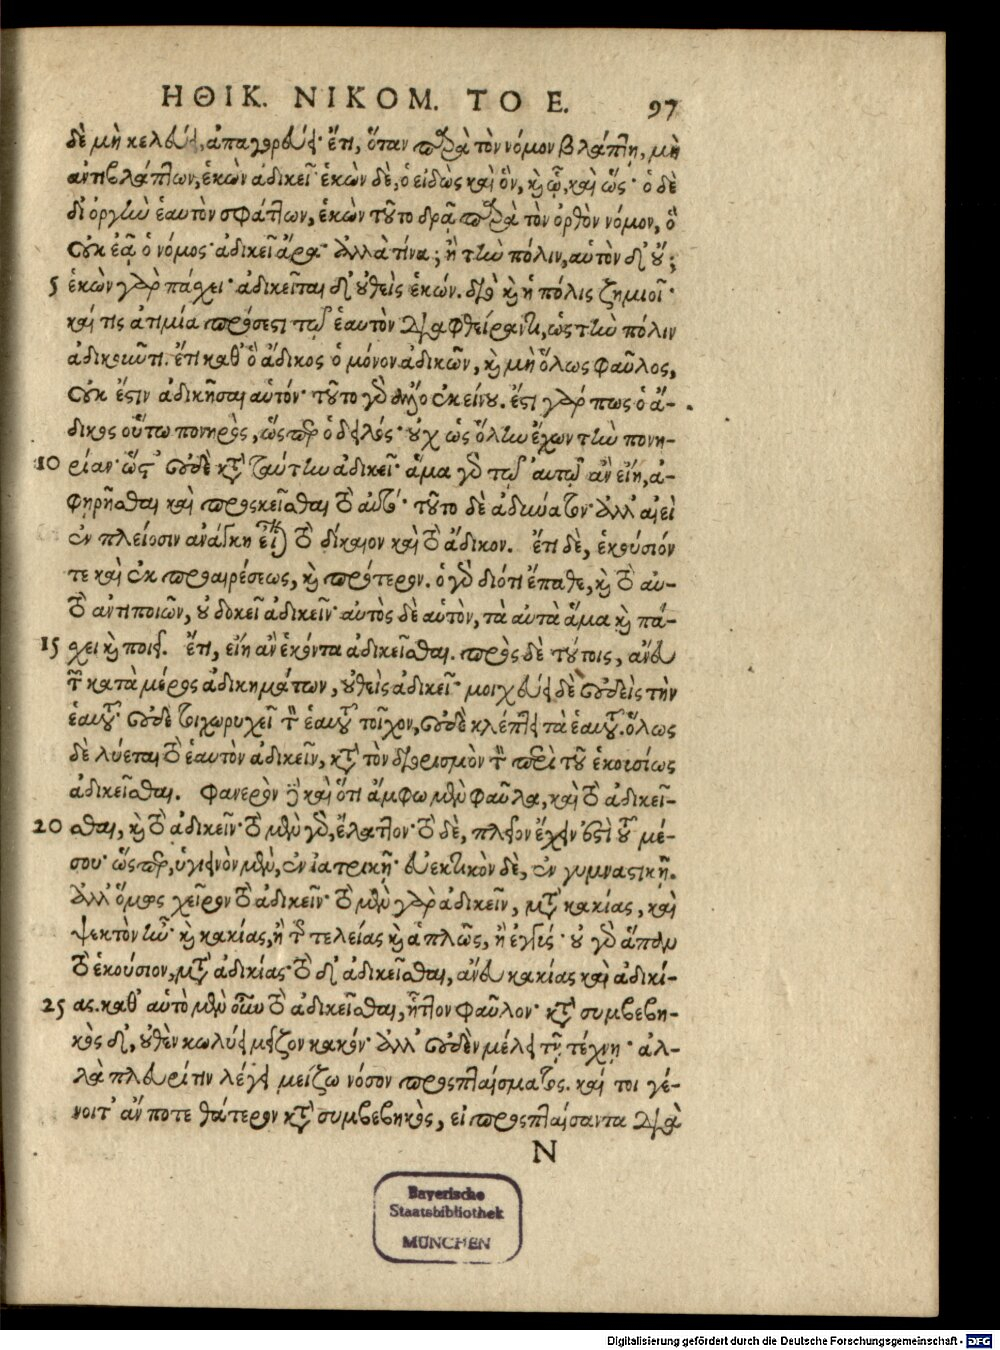 ΗΘΙΚ. ΝΙΚΟΜ. ΤΟ Ε. 97
δὲ μὴ κελεύει, ἀπαγορεύει· ἔτι, ὅταν παρὰ τὸν νόμον βλάπτῃ, μὴ
ἀντιβλάπτων, ἑκὼν ἀδικεῖ· ἑκὼν δὲ, ὁ εἰδὼς καὶ ὃν, καὶ ᾧ, καὶ ὥς· ὁ δὲ
δι' ὀργὴν ἑαυτὸν σφάττων, ἑκὼν τοῦτο δρᾷ παρὰ τὸν ὀρθὸν νόμον, ὃ
οὐκ ἐᾷ ὁ νόμος· ἀδικεῖ ἄρα· ἀλλὰ τίνα; ἢ τὴν πόλιν, αὑτὸν δ' οὔ;
5 ἑκὼν γὰρ πάσχει· ἀδικεῖται δ' οὐθεὶς ἑκών. διὸ καὶ ἡ πόλις ζημιοῖ·
καί τις ἀτιμία πρόσεστι τῷ ἑαυτὸν διαφθείραντι, ὡς τὴν πόλιν
ἀδικοῦντι. ἔτι καθ' ὃ ἄδικος ὁ μόνον ἀδικῶν, καὶ μὴ ὅλως φαῦλος,
οὐκ ἔστιν ἀδικῆσαι αὑτόν· τοῦτο γὰρ ἄλλο ἐκείνου. ἔστι γάρ πως ὁ ἄ-
δικος οὕτω πονηρὸς, ὥσπερ ὁ δειλός· οὐχ ὡς ὅλην ἔχων τὴν πονη-
10 ρίαν· ὥστ' οὐδὲ κατὰ ταύτην ἀδικεῖ· ἅμα γὰρ τῷ αὐτῷ ἂν εἴη, ἀ-
φῃρῆσθαι καὶ προσκεῖσθαι τὸ αὐτό· τοῦτο δὲ ἀδύνατον· ἀλλ' αἰεὶ
ἐν πλείοσιν ἀνάγκη εἶναι τὸ δίκαιον καὶ τὸ ἄδικον. ἔτι δὲ, ἑκούσιόν
τε καὶ ἐκ προαιρέσεως, καὶ πρότερον. ὁ γὰρ διότι ἔπαθε, καὶ τὸ αὐ-
τὸ ἀντιποιῶν, οὐ δοκεῖ ἀδικεῖν· αὐτὸς δὲ αὑτὸν, τὰ αὐτὰ ἅμα καὶ πά-
15 σχει καὶ ποιεῖ. ἔτι, εἴη ἂν ἑκόντα ἀδικεῖσθαι. πρὸς δὲ τούτοις, ἄνευ
τῶν κατὰ μέρος ἀδικημάτων, οὐθεὶς ἀδικεῖ· μοιχεύει δὲ οὐδεὶς τὴν
ἑαυτοῦ· οὐδὲ τοιχωρυχεῖ τὸν ἑαυτοῦ τοῖχον, οὐδὲ κλέπτει τὰ ἑαυτοῦ. ὅλως
δὲ λύεται τὸ ἑαυτὸν ἀδικεῖν, κατὰ τὸν διορισμὸν τὸν περὶ τοῦ ἑκουσίως
ἀδικεῖσθαι. φανερὸν δὲ καὶ ὅτι ἄμφω μὲν φαῦλα, καὶ τὸ ἀδικεῖ-
20 σθαι, καὶ τὸ ἀδικεῖν· τὸ μὲν γὰρ, ἔλαττον· τὸ δὲ, πλεῖον ἔχειν ἐστὶ τοῦ μέ-
σου· ὥσπερ, ὑγιεινὸν μὲν, ἐν ἰατρικῇ· εὐεκτικὸν δὲ, ἐν γυμναστικῇ.
ἀλλ' ὅμως χεῖρον τὸ ἀδικεῖν· τὸ μὲν γὰρ ἀδικεῖν, μετὰ κακίας, καὶ
ψεκτὸν ἦν· καὶ κακίας, ἢ τῆς τελείας καὶ ἁπλῶς, ἢ ἐγγύς· οὐ γὰρ ἅπαν
τὸ ἑκούσιον, μετὰ ἀδικίας· τὸ δ' ἀδικεῖσθαι, ἄνευ κακίας καὶ ἀδικί-
25 ας. καθ' αὑτὸ μὲν οὖν τὸ ἀδικεῖσθαι, ἧττον φαῦλον· κατὰ συμβεβη-
κὸς δ', οὐθὲν κωλύει μεῖζον κακόν· ἀλλ' οὐδὲν μέλει τῇ τέχνῃ· ἀλ-
λὰ πλευρῖτιν λέγει μείζω νόσον προσπταίσματος. καί τοι γέ-
νοιτ' ἄν ποτε θάτερον κατὰ συμβεβηκὸς, εἰ προσπταίσαντα διὰ
N
Bayerische
Staatsbibliothek
MÜNCHEN
Digitalisierung gefördert durch die Deutsche Forschungsgemeinschaft - DFG